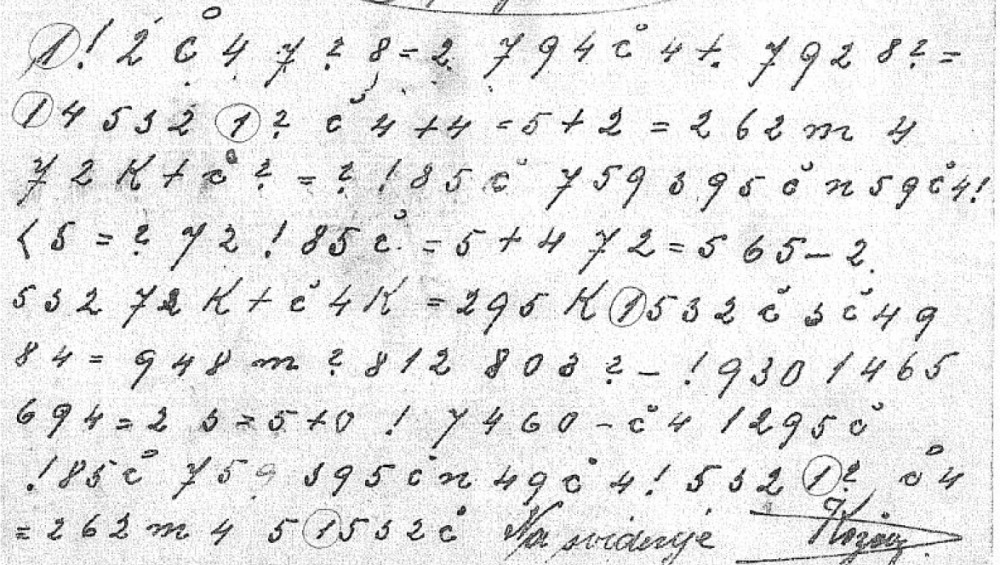 1! 2 č 4 7 ? 8 = 2 7 9 4 č 4 +. 7 9 2 8 ? =
1 4 5 3 2 1 ? č 4 + 4 = 5 + 2 = 2 6 2 m 4
7 2 K + č ? = ? ! 8 5 č 7 5 9 3 9 5 č n 5 9 č 4!
5 = ? 7 2 ! 8 5 č = 5 + 4 7 2 = 5 6 5 – 2.
5 3 2 7 2 K + č 4 K = 2 9 5 K 1 5 3 2 č 3 č 4 9
8 4 = 9 4 8 m ? 8 1 2 8 0 3 ? – ! 9 3 0 1 4 6 5
6 9 4 = 2 3 = 5 + 0 ! 7 4 6 0 – č 4 1 2 9 5 č
! 8 5 č 7 5 9 3 9 5 č n 4 9 č 4 ! 5 3 2 1 ? č 4
= 2 6 2 m 4 5 1 5 3 2 č Na svidenje